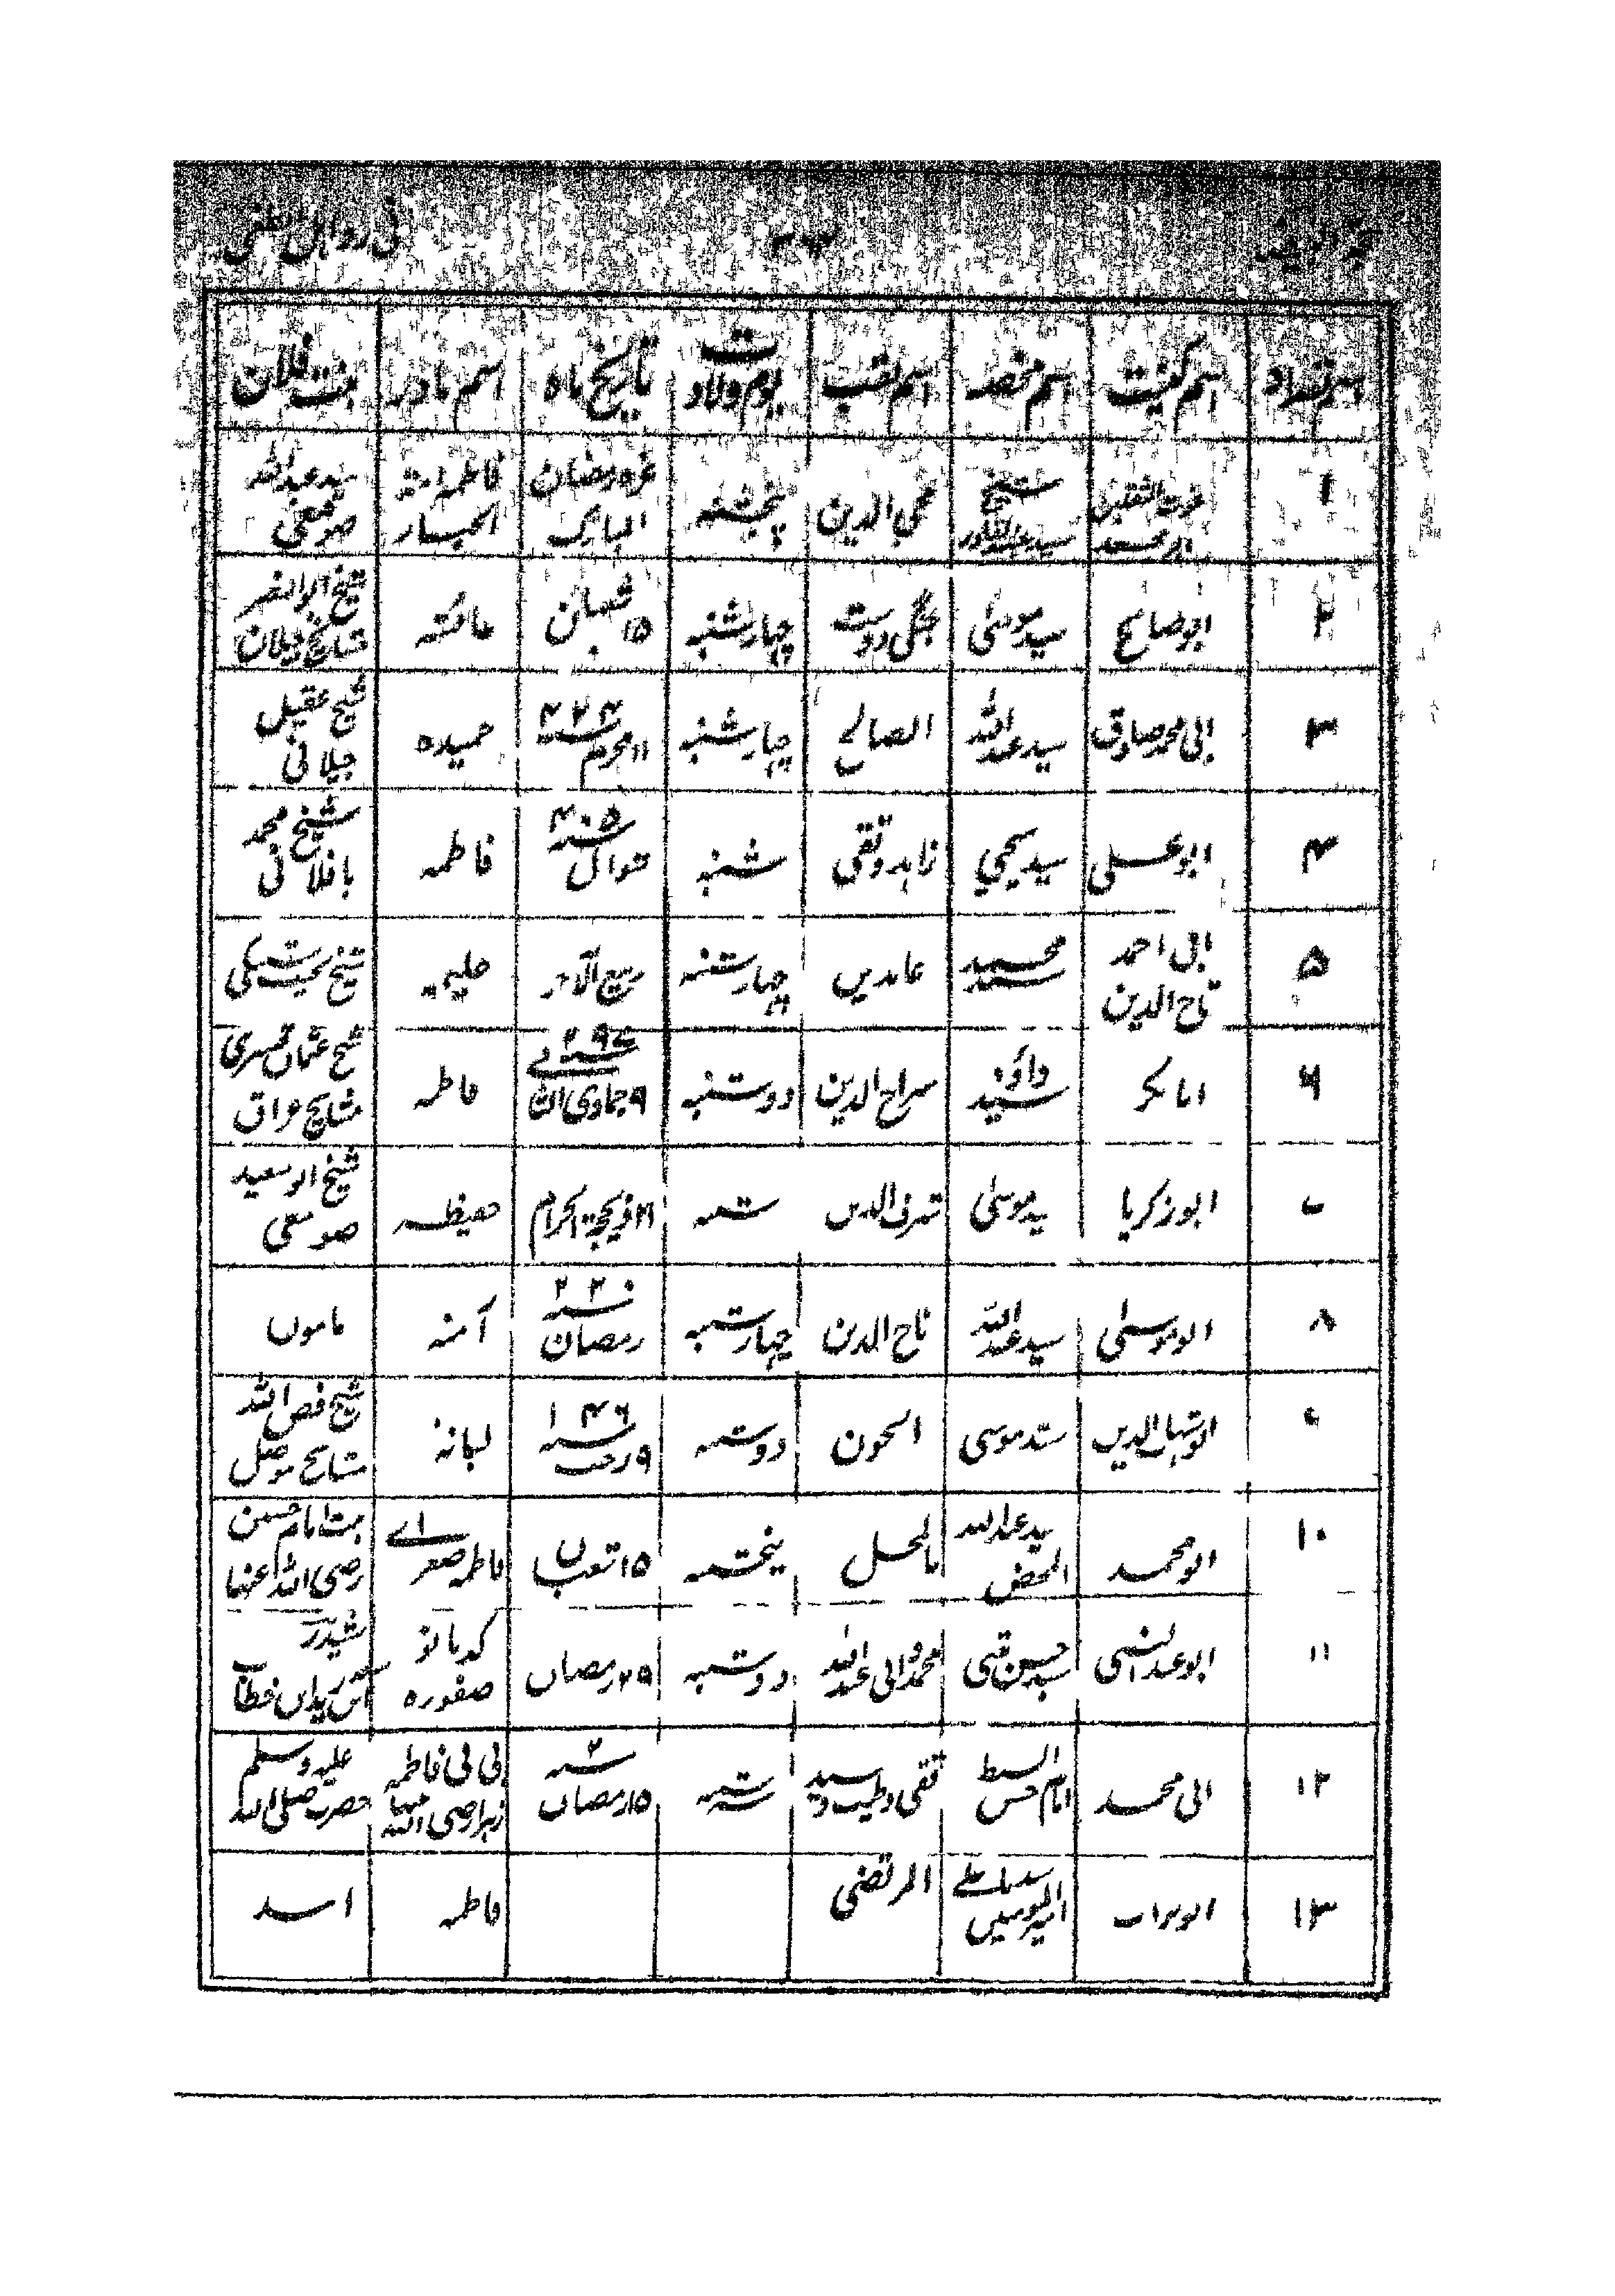 اسم تعداد اسم کنیت اسم مخصه اسم لقب یوم ولادت تاریخ ماہ اسم مادر بنت فلان
۱ غوث الثقلین ابو محمد شیخ سید عبدالقادر محی الدین پنجشنبہ غرہ رمضان المبارک فاطمہ امتہ الجبار سید عبداللہ صومعی
۲ ابو صالح سید موسیٰ جنگی دوست چہارشنبہ ۱۵ شعبان عائشہ شیخ ابو النصر مشایخ جیلان
۳ ابی محمد صادق سید عبداللہ الصالح چہارشنبہ ۱۱ محرم حمیدہ شیخ عقیل جیلانی
۴ ابو علی سید یحیی زاہد و تقی شنبہ شوال فاطمہ شیخ محمد باقلانی
۵ ابی احمد تاج الدین سید محمد عابدین چہارشنبہ ربیع الآخر حلیمہ شیخ
۶ سید داؤد سراج الدین دوشنبہ ۹ جمادی الثا فاطمہ شیخ عثمان مشایخ عراق
۷ ابو زکریا سید موسیٰ شرف الدین شنبہ ۲۱ ذیحجۃ الحرام حفیظہ شیخ ابو سعید صومعی
۸ ابو موسیٰ سید عبداللہ تاج الدین چہارشنبہ ۲۳۰ سنہ رمضان آمنہ مامون
۹ سید موسی الجون دوشنبہ ۱۴۶ سنہ ۹ رجب لبانہ شیخ مشایخ موصل
۱۰ ابو محمد سید عبداللہ المحض پنجشنبہ ۱۵ شعبان فاطمہ صغراے بنت امام حسین رضی اللہ عنہا
۱۱ سید حسن مثنی محمد و ابی عبداللہ دوشنبہ ۲۹ رمضان صفورہ خطاب
۱۲ ابی محمد السبط امام حسن تقی و طیب و سید سہ شنبہ ۳ سنہ ۱۵ رمضان بی بی فاطمہ زہرا رضی اللہ عنہا حضرت صلی اللہ علیہ و سلم
۱۳ ابو تراب امیر المومنین المرتضی فاطمہ اسد